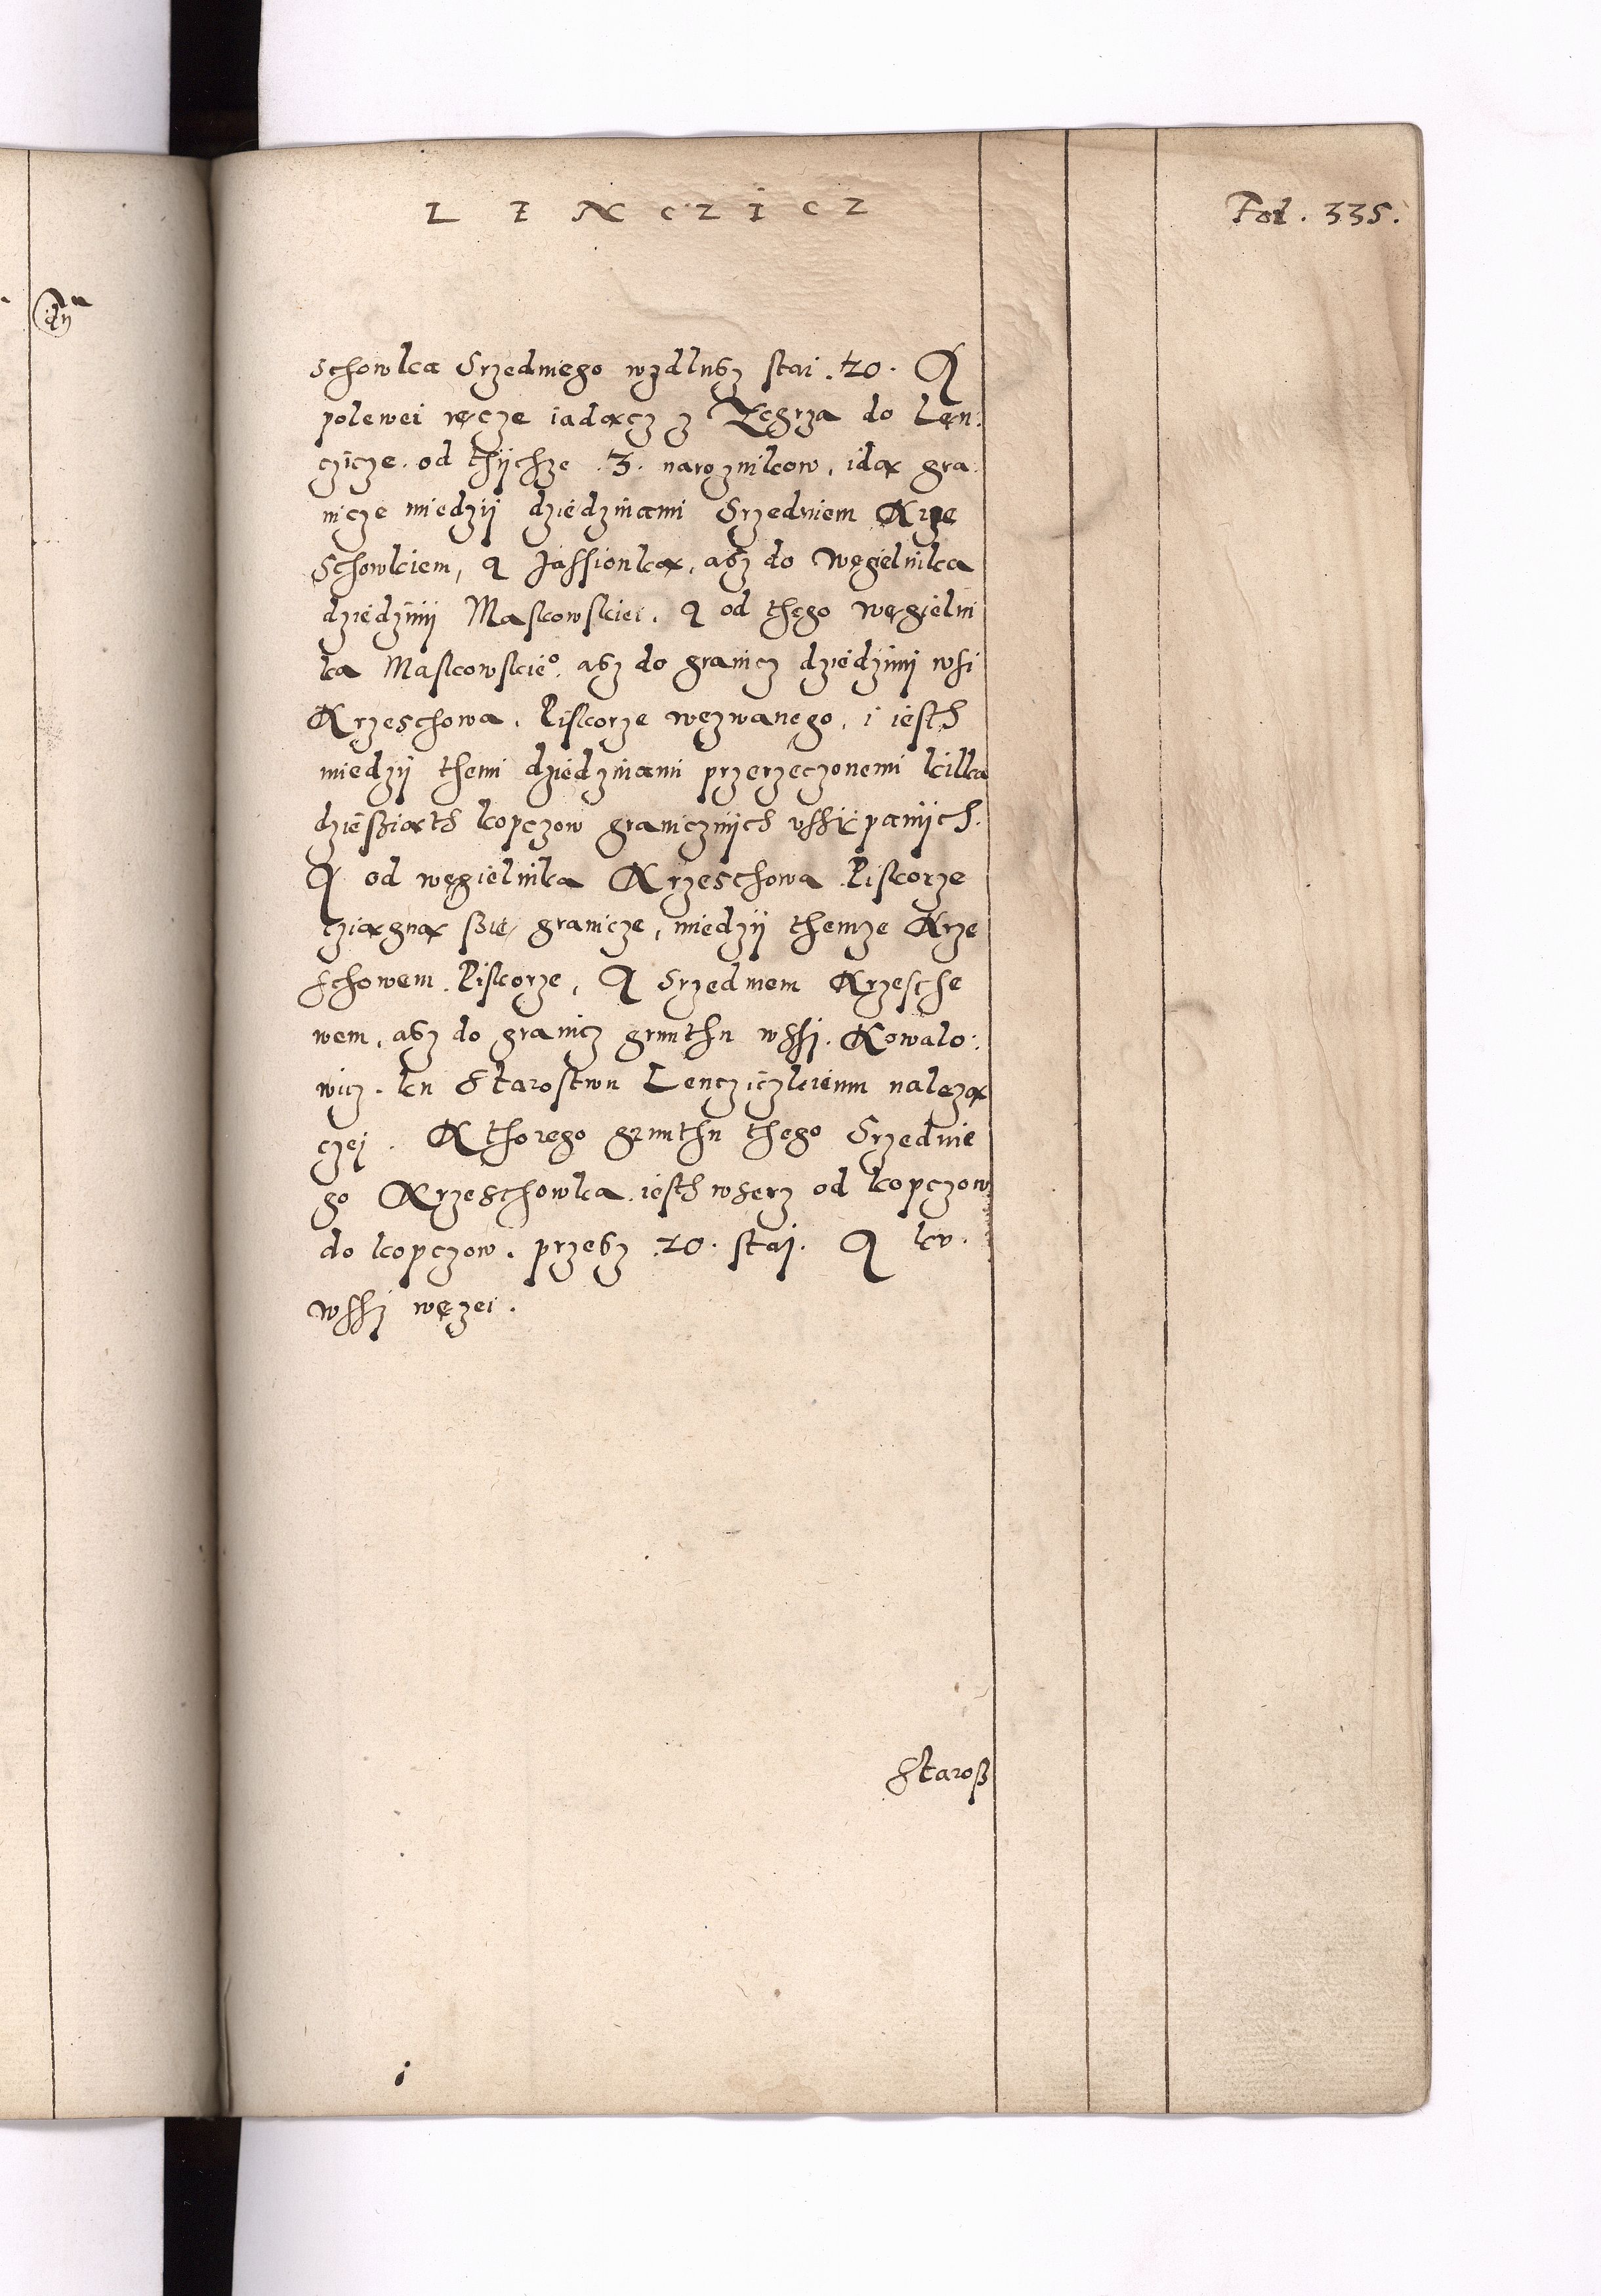 LENCZICZ
Fol. 335.
schowka Srzedniego wzdlusz stai .20. A
polewei ręcze iadączy z Zegrza do Len:
czicze. od thÿchze .3. naroznikow, idą gra:
nicze miedzÿ dziedzinami Srzedniem Krze
schowkiem, A Jassionką, asz do Węgielnika
dziedzinÿ Maskowskiei. A od thego Węgielni
ka Maskowskie⁰. asz do granicz dziedzinÿ wsi
Krzeschowa, Piskorze wezwanego, i iesth
miedzÿ themi dziedzinami przerzeczonemi kilka
dziesziąth kopczow granicznÿch ussÿpanÿch.
A od węgielnika Krzeschowa Piskorze
cziągną szię granicze, miedzÿ themze Krze
schowem Piskorze, A Srzedniem Krzesche
wem, asz do granicz grunthu wssi. Kowalo:
wicz. ku Starostwu Lencziczkiemu nalezą
czej. Kthorego grunthu thego Srzednie
go Krzeschowka iesth wserz od kopczow
do kopczow. przesz .20. staj. A ku
wssi węzei.
Starosz